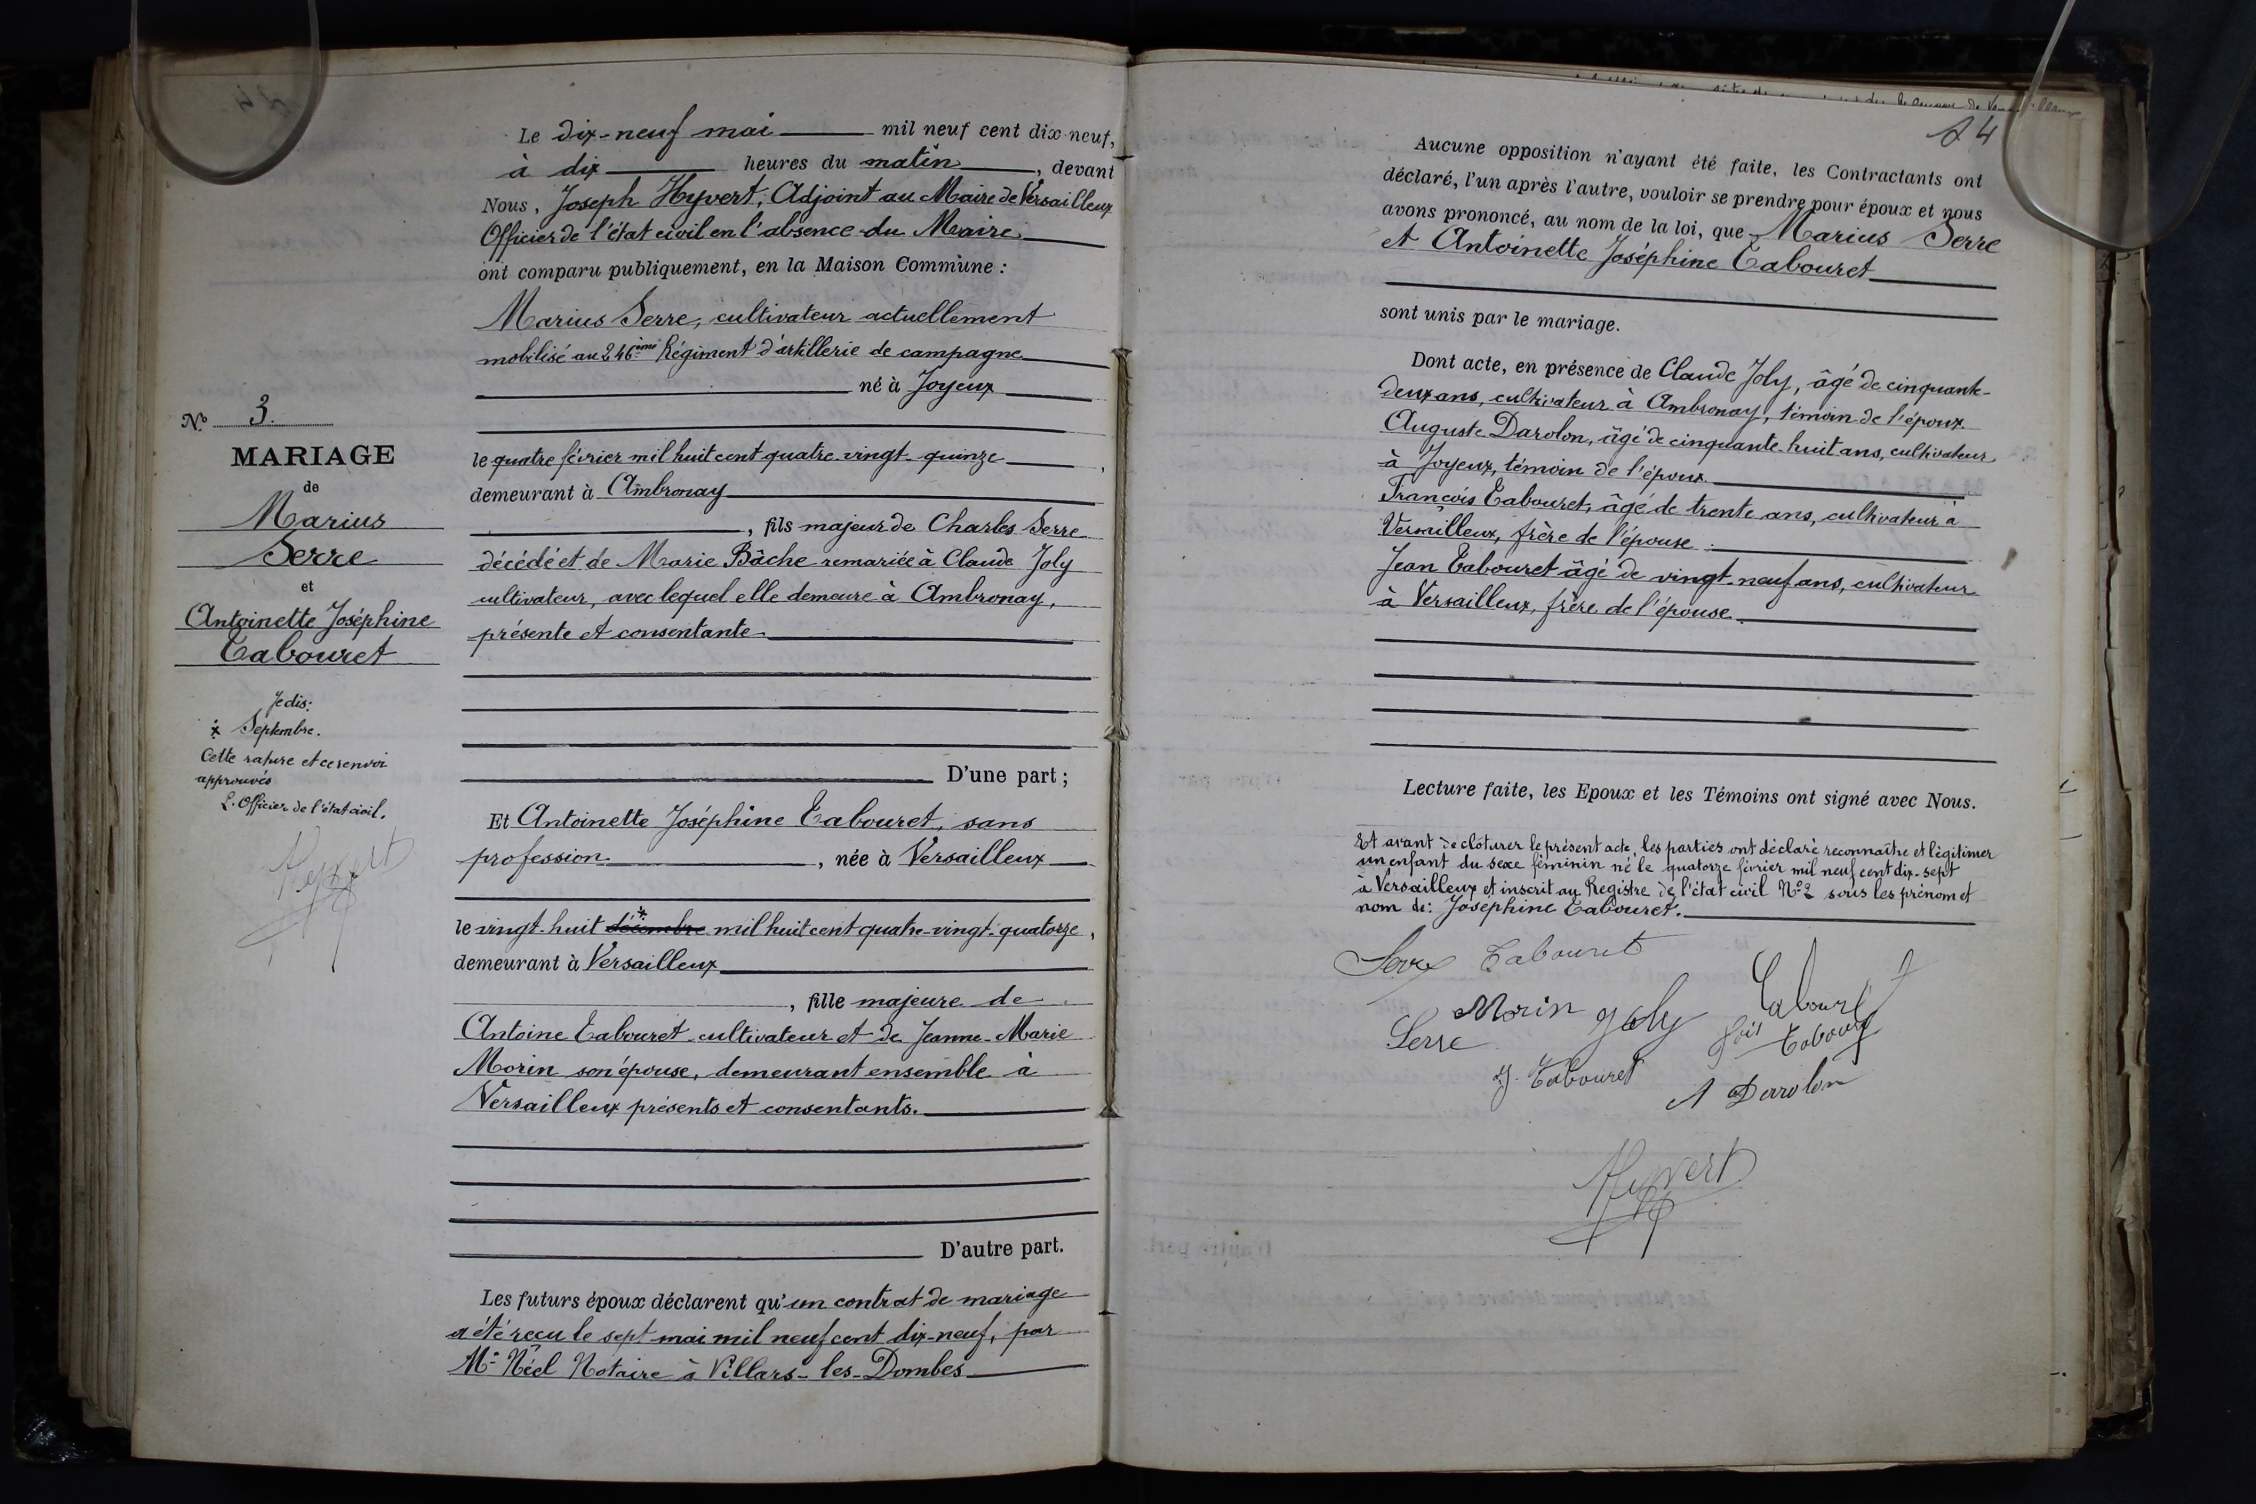 Le dix-neuf mai mil neuf cent dix-neuf,
à dix heures du matin, devant
Nous, Joseph Hyvert, Adjoint au Maire de Versailleux
Officier de l'état civil en l'absence du Maire
ont comparu publiquement, en la Maison Commune :
Marius Serre, cultivateur actuellement
mobilisé au 246ème Régiment d'artillerie de campagne
né à Joyeux
le quatre février mil huit cent quatre-vingt-quinze
demeurant à Ambronay
, fils majeur de Charles Serre
décédé et de Marie Bâche remariée à Claude Joly
cultivateur, avec lequel elle demeure à Ambronay,
présente et consentante
D'une part ;
Et Antoinette Joséphine Tabouret, sans
profession, née à Versailleux
le vingt-huit décembre mil huit cent quatre-vingt-quatorze,
demeurant à Versailleux
, fille majeure de
Antoine Tabouret cultivateur et de Jeanne-Marie
Morin son épouse, demeurant ensemble à
Versailleux présents et consentants.
D'autre part.
Les futurs époux déclarent qu'un contrat de mariage
a été reçu le sept mai mil neuf cent dix-neuf, par
Me Néel Notaire à Villars-les-Dombes
No 3.
MARIAGE
de
Marius
Serre
et
Antoinette Joséphine
Tabouret
Je dis:
x Septembre.
Cette rature et ce renvoi
approuvés
L'Officier de l'état civil.
Hyvert
24
Aucune opposition n'ayant été faite, les Contractants ont
déclaré, l'un après l'autre, vouloir se prendre pour époux et nous
avons prononcé, au nom de la loi, que Marius Serre
et Antoinette Joséphine Tabouret
sont unis par le mariage.
Dont acte, en présence de Claude Joly, âgé de cinquante-
deux ans, cultivateur à Ambronay, témoin de l'époux
Auguste Darolon, âgé de cinquante-huit ans, cultivateur
à Joyeux, témoin de l'époux
François Tabouret, âgé de trente ans, cultivateur à
Versailleux, frère de l'épouse
Jean Tabouret âgé de vingt-neuf ans, cultivateur
à Versailleux, frère de l'épouse
Lecture faite, les Epoux et les Témoins ont signé avec Nous.
Et avant de clôturer le présent acte, les parties ont déclaré reconnaître et légitimer
un enfant du sexe féminin né le quatorze février mil neuf cent dix-sept
à Versailleux et inscrit au Registre de l'état civil No 2 sous les prénom et
nom de: Joséphine Tabouret.
Serre Tabouret
Morin Joly Tabouret
Serre fois Tabouret
J. Tabouret
A Darolon
Hyvert